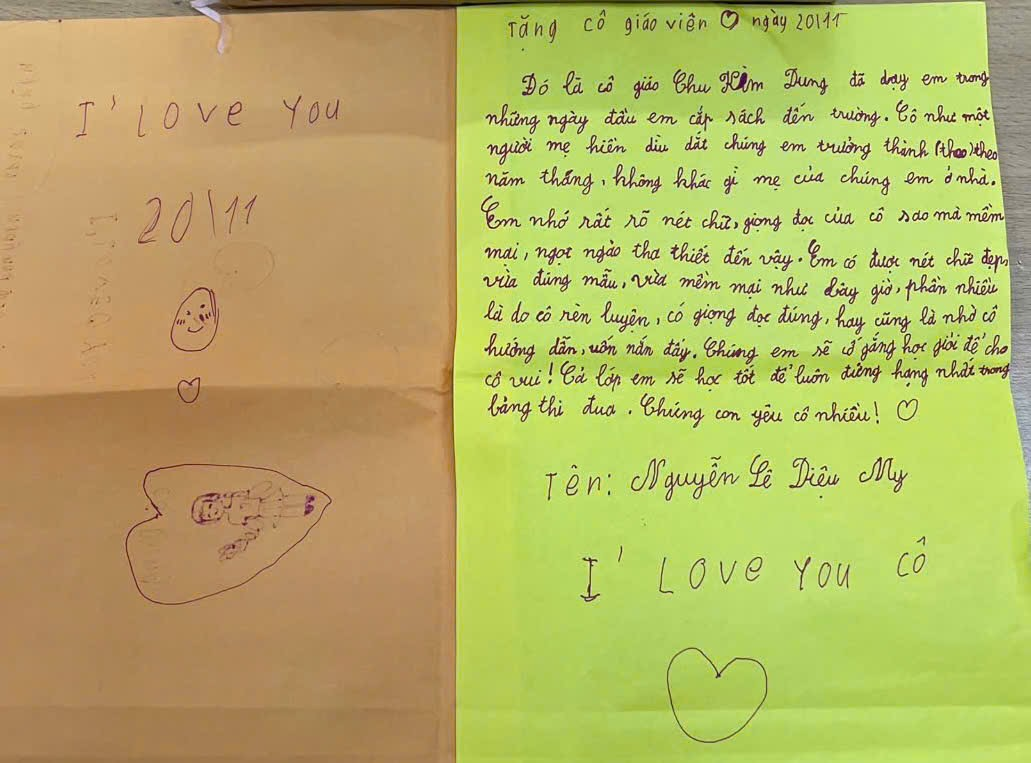 I' Love You
20\11
Tặng cô giáo viên ngày 20\11
Đó là cô giáo Chu Kim Dung đã dạy em trong
những ngày đầu em cắp sách đến trường. Cô như một
người mẹ hiền dìu dắt chúng em trưởng thành (theo) theo
năm tháng, không khác gì mẹ của chúng em ở nhà.
Em nhớ rất rõ nét chữ, giọng đọc của cô sao mà mềm
mại, ngọt ngào tha thiết đến vậy. Em có được nét chữ đẹp,
vừa đúng mẫu, vừa mềm mại như bây giờ, phần nhiều
là do cô rèn luyện, có giọng đọc đúng, hay cũng là nhờ cô
hướng dẫn, uốn nắn đấy. Chúng em sẽ cố gắng học giỏi để cho
cô vui! Cả lớp em sẽ học tốt để luôn đứng hạng nhất trong
bảng thi đua. Chúng con yêu cô nhiều!
Tên: Nguyễn Lê Diệu My
I' Love You cô